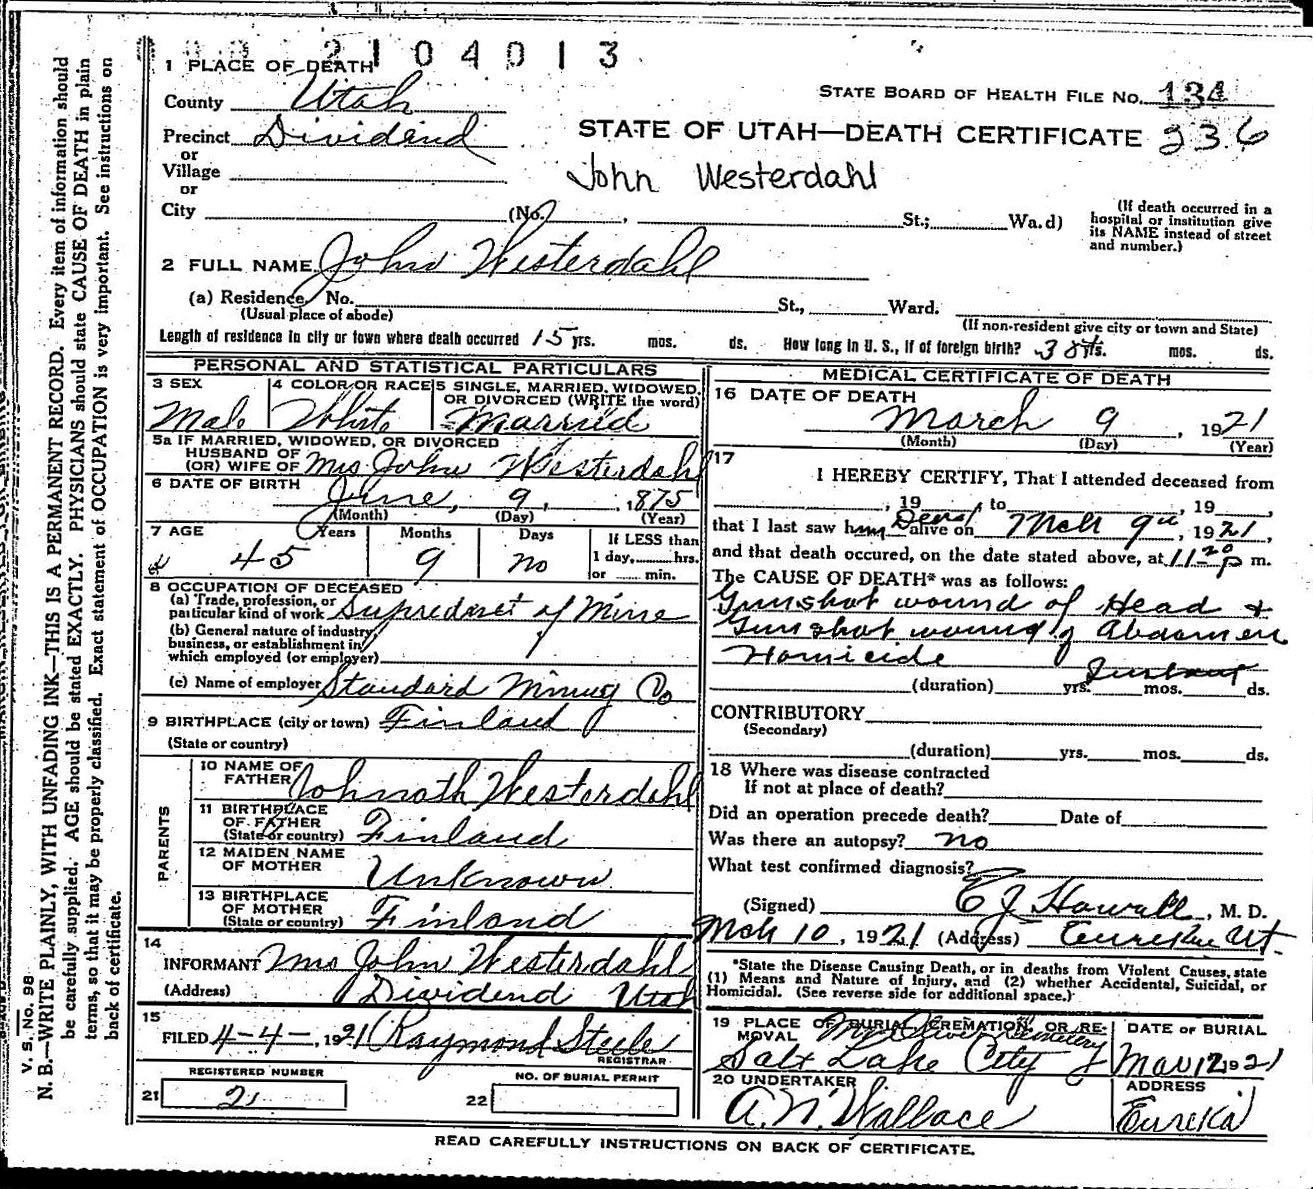 2104013
1 PLACE OF DEATH
County Utah
STATE BOARD OF HEALTH FILE NO. 134
Precinct Dividend
STATE OF UTAH—DEATH CERTIFICATE 236
or
Village
John Westerdahl
or
City (No. , St.; Wa.d)
(If death occurred in a hospital or institution give its NAME instead of street and number.)
2 FULL NAME John Westerdahl
(a) Residence, No. St., Ward.
(Usual place of abode)
(If non-resident give city or town and State)
Length of residence in city or town where death occurred 15 yrs. mos. ds. How long in U. S., if of foreign birth? 38 yrs. mos. ds.
PERSONAL AND STATISTICAL PARTICULARS
3 SEX
Male
4 COLOR OR RACE
White
5 SINGLE, MARRIED, WIDOWED, OR DIVORCED (WRITE the word)
Married
5a IF MARRIED, WIDOWED, OR DIVORCED
HUSBAND OF
(OR) WIFE OF Mrs John Westerdahl
6 DATE OF BIRTH
June, 9, 1875
(Month) (Day) (Year)
7 AGE Years Months Days If LESS than
1 day, hrs.
or min.
45 9 no
8 OCCUPATION OF DECEASED
(a) Trade, profession, or
particular kind of work Supredanet of Mine
(b) General nature of industry,
business, or establishment in
which employed (or employer)
(c) Name of employer Standard Mining Co
9 BIRTHPLACE (city or town) Finland
(State or country)
PARENTS
10 NAME OF
FATHER Johnath Westerdahl
11 BIRTHPLACE
OF FATHER
(State or country) Finland
12 MAIDEN NAME
OF MOTHER Unknown
13 BIRTHPLACE
OF MOTHER
(State or country) Finland
14
INFORMANT Mrs John Westerdahl
(Address) Dividend Utah
15
FILED 4-4-, 1921 Raymond Steele
REGISTRAR
REGISTERED NUMBER
21 2
NO. OF BURIAL PERMIT
22
MEDICAL CERTIFICATE OF DEATH
16 DATE OF DEATH
March 9, 1921
(Month) (Day) (Year)
17
I HEREBY CERTIFY, That I attended deceased from
, 19 , to , 19 ,
that I last saw him Dead alive on Mch 9th, 1921,
and that death occured, on the date stated above, at 11-20 p m.
The CAUSE OF DEATH* was as follows:
Gunshot wound of Head &
Gunshot wound of Abdomen
Homicide
(duration) yrs. Instant mos. ds.
CONTRIBUTORY
(Secondary)
(duration) yrs. mos. ds.
18 Where was disease contracted
If not at place of death?
Did an operation precede death? Date of
Was there an autopsy? no
What test confirmed diagnosis?
(Signed) E J Howell, M. D.
Mch 10, 1921 (Address) Eureka Ut.
*State the Disease Causing Death, or in deaths from Violent Causes, state
(1) Means and Nature of Injury, and (2) whether Accidental, Suicidal, or
Homicidal. (See reverse side for additional space.)
19 PLACE OF BURIAL, CREMATION, OR RE-
MOVAL Mt Olivet Cemetery
Salt Lake City
DATE OF BURIAL
Mar 12 1921
20 UNDERTAKER
A. N. Wallace
ADDRESS
Eureka
READ CAREFULLY INSTRUCTIONS ON BACK OF CERTIFICATE.
V. S. No. 98
N. B.—WRITE PLAINLY, WITH UNFADING INK—THIS IS A PERMANENT RECORD. Every item of information should
be carefully supplied. AGE should be stated EXACTLY. PHYSICIANS should state CAUSE OF DEATH in plain
terms, so that it may be properly classified. Exact statement of OCCUPATION is very important. See instructions on
back of certificate.